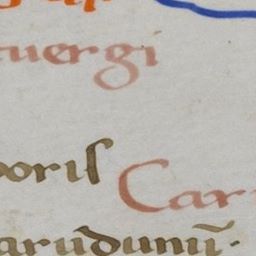 uergi
oris Car
arudumī.